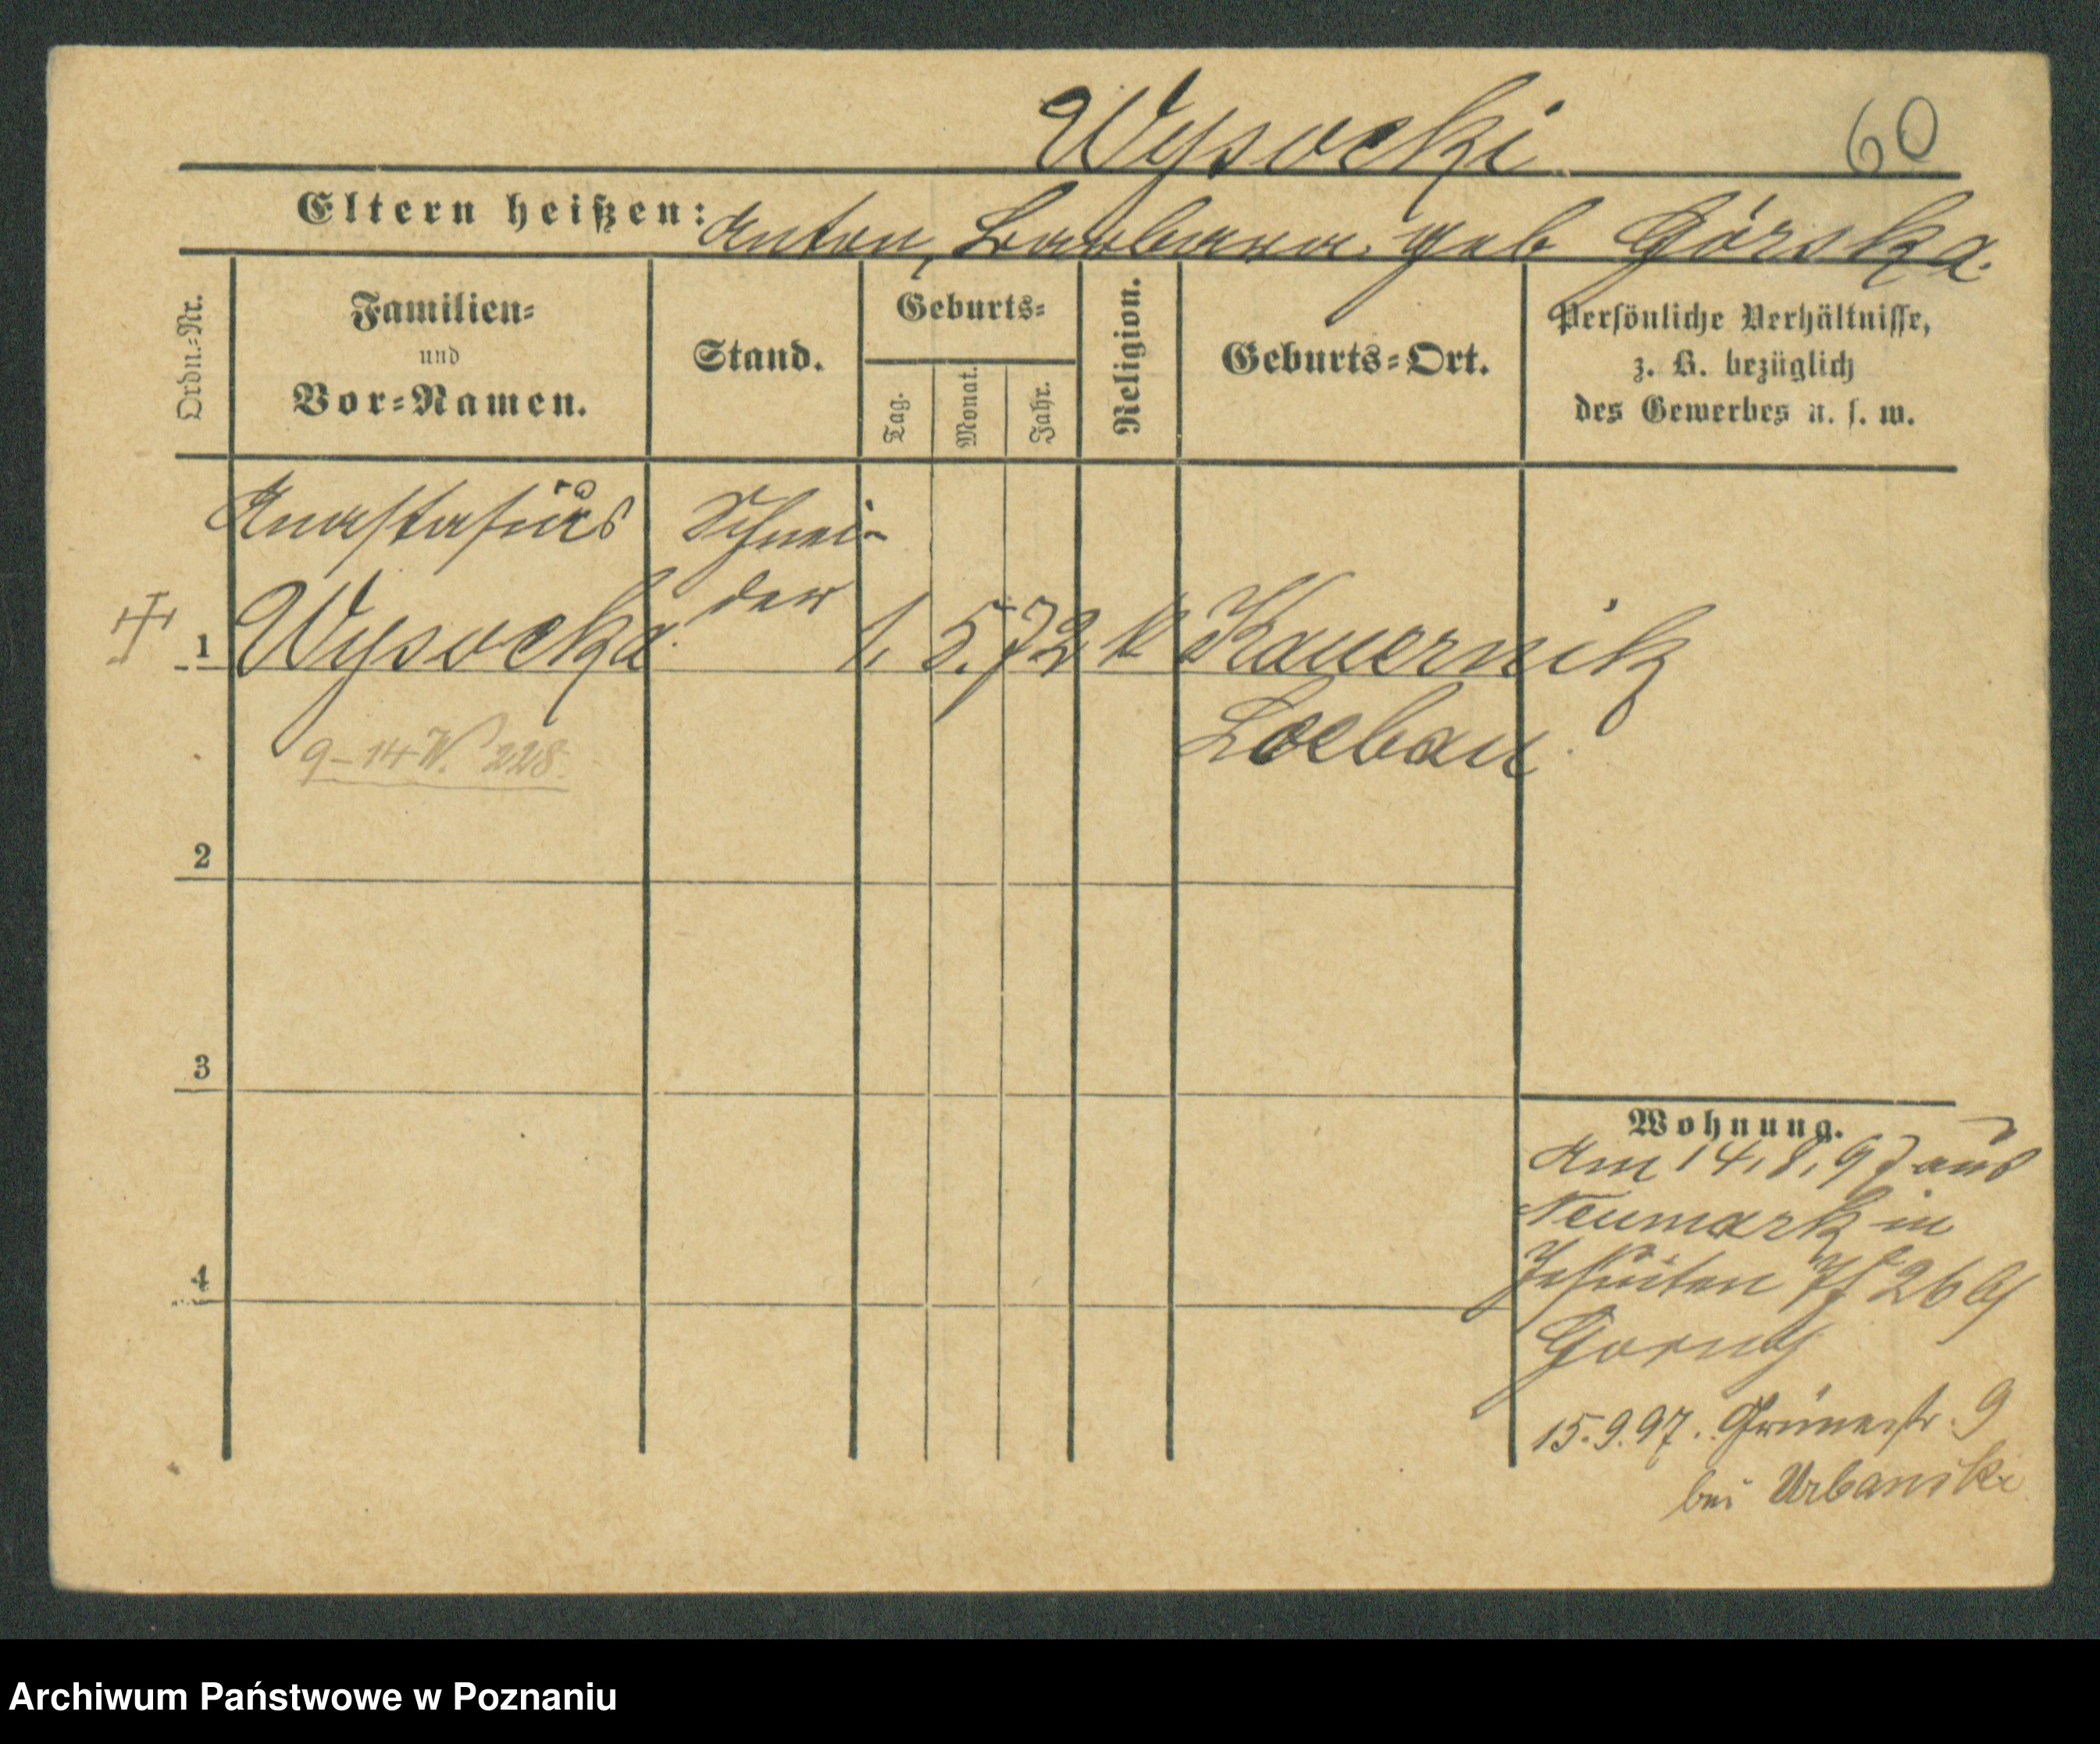 Wysocki 60
Eltern heißen: Anton, Barbara geb Górska.
Ordn.-Nr.
Familien-
und
Vor-Namen.
Stand.
Geburts-
Tag.
Monat.
Jahr.
Religion.
Geburts-Ort.
Persönliche Verhältnisse,
z. B. bezüglich
des Gewerbes u. s. w.
Anastasius Schnei-
der
1 Wysocka 1. 5. 72 k Kauernik
Loebau
9-14 W. 228.
2
3
4
Wohnung.
Am 14.8.97 aus
Neumark in
Jesuiten 26
Gorny
15.9.97. Grünestr. 9
bei Urbanski
Archiwum Państwowe w Poznaniu